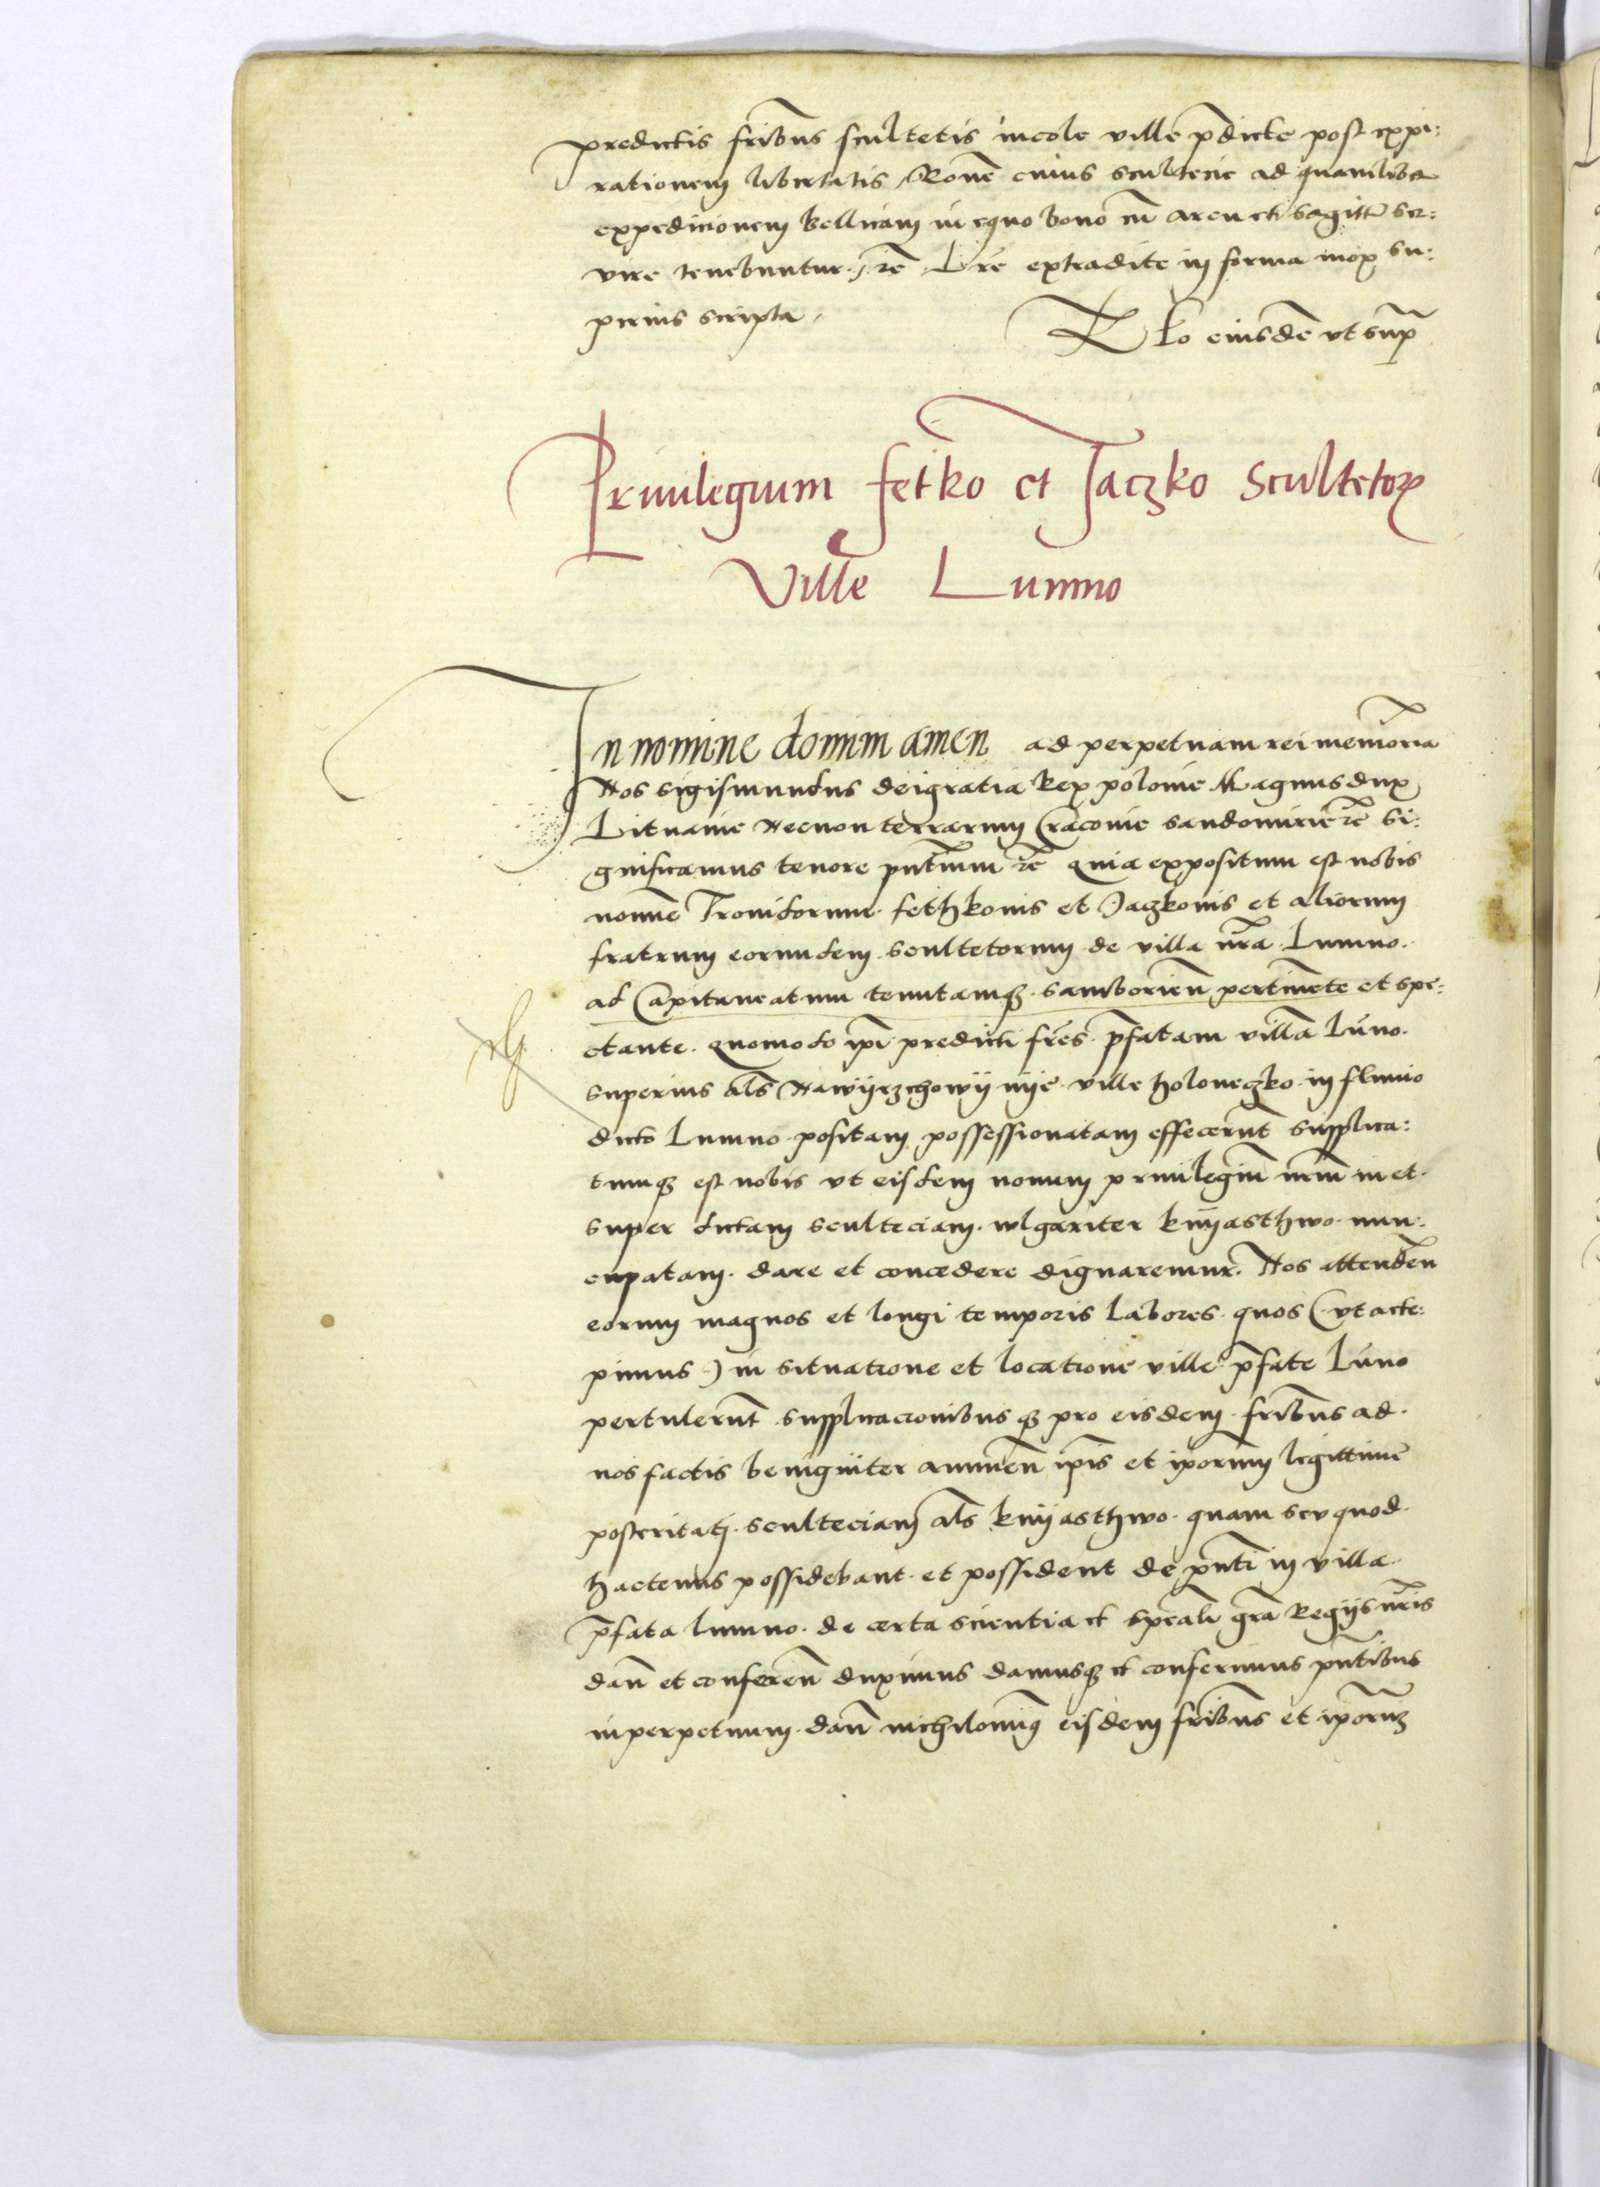 predictis fribus scultetis incole ville pdicte post expi:
rationem libertatis, Rone cuius scultecie ad quamlibet
expedicionem bellicam in equo bono cu arcu et sagittis ser:
vire tenebuntur, rc Lre extradite in forma mox su:
perius scripta,
Rlo eiusde vt supra
Privilegium fetko et Jaczko Scultetor
Ville Lumno
In nomine domini amen ad perpetuam rei memoria
Nos Sigismundus dei gratia Rex polonie Magnus dux
Lituanie Necnon terrarum Cracovie sandomirie rc Si:
gnificamus tenore pntium rc quia expositum est nobis
nomine Providorum fethkonis et Jaczkonis et aliorum
fratrum eorundem scultetorum de villa nra Lumno.
ad Capitaneatum tenutamq samborien pertinente et spe:
ctante. quomodo ipi predicti fres pfatam villa Luno.
superius als Nawyrzchowy nye ville holoneczko in fluvio
dicto Lumno positam possessionatam effecerut supplica:
tumq est nobis vt eisdem nouum priuilegiu nrm in et
super dictam sculteciam wlgariter knyasthwo nun:
cupatam. dare et concedere dignaremur. Nos attenden
eorum magnos et longi temporis labores quos (vt acce:
pimus) in situatione et locatione ville pfate Luno
pertulerut supplicaccionibus q pro eisdem fribus ad
nos factis benigniter annuen ipis et iporum legittime
posteritati scultecian als knyasthwo quam seu quod
hactenus possidebant et possident de pnti in villa
pfata lumno de certa scientia et speali gra Regijs nris
dan et conferen duximus damusq et conferimus pntibus
inperpetuum dan nichilominq eisdem fribus et iporum